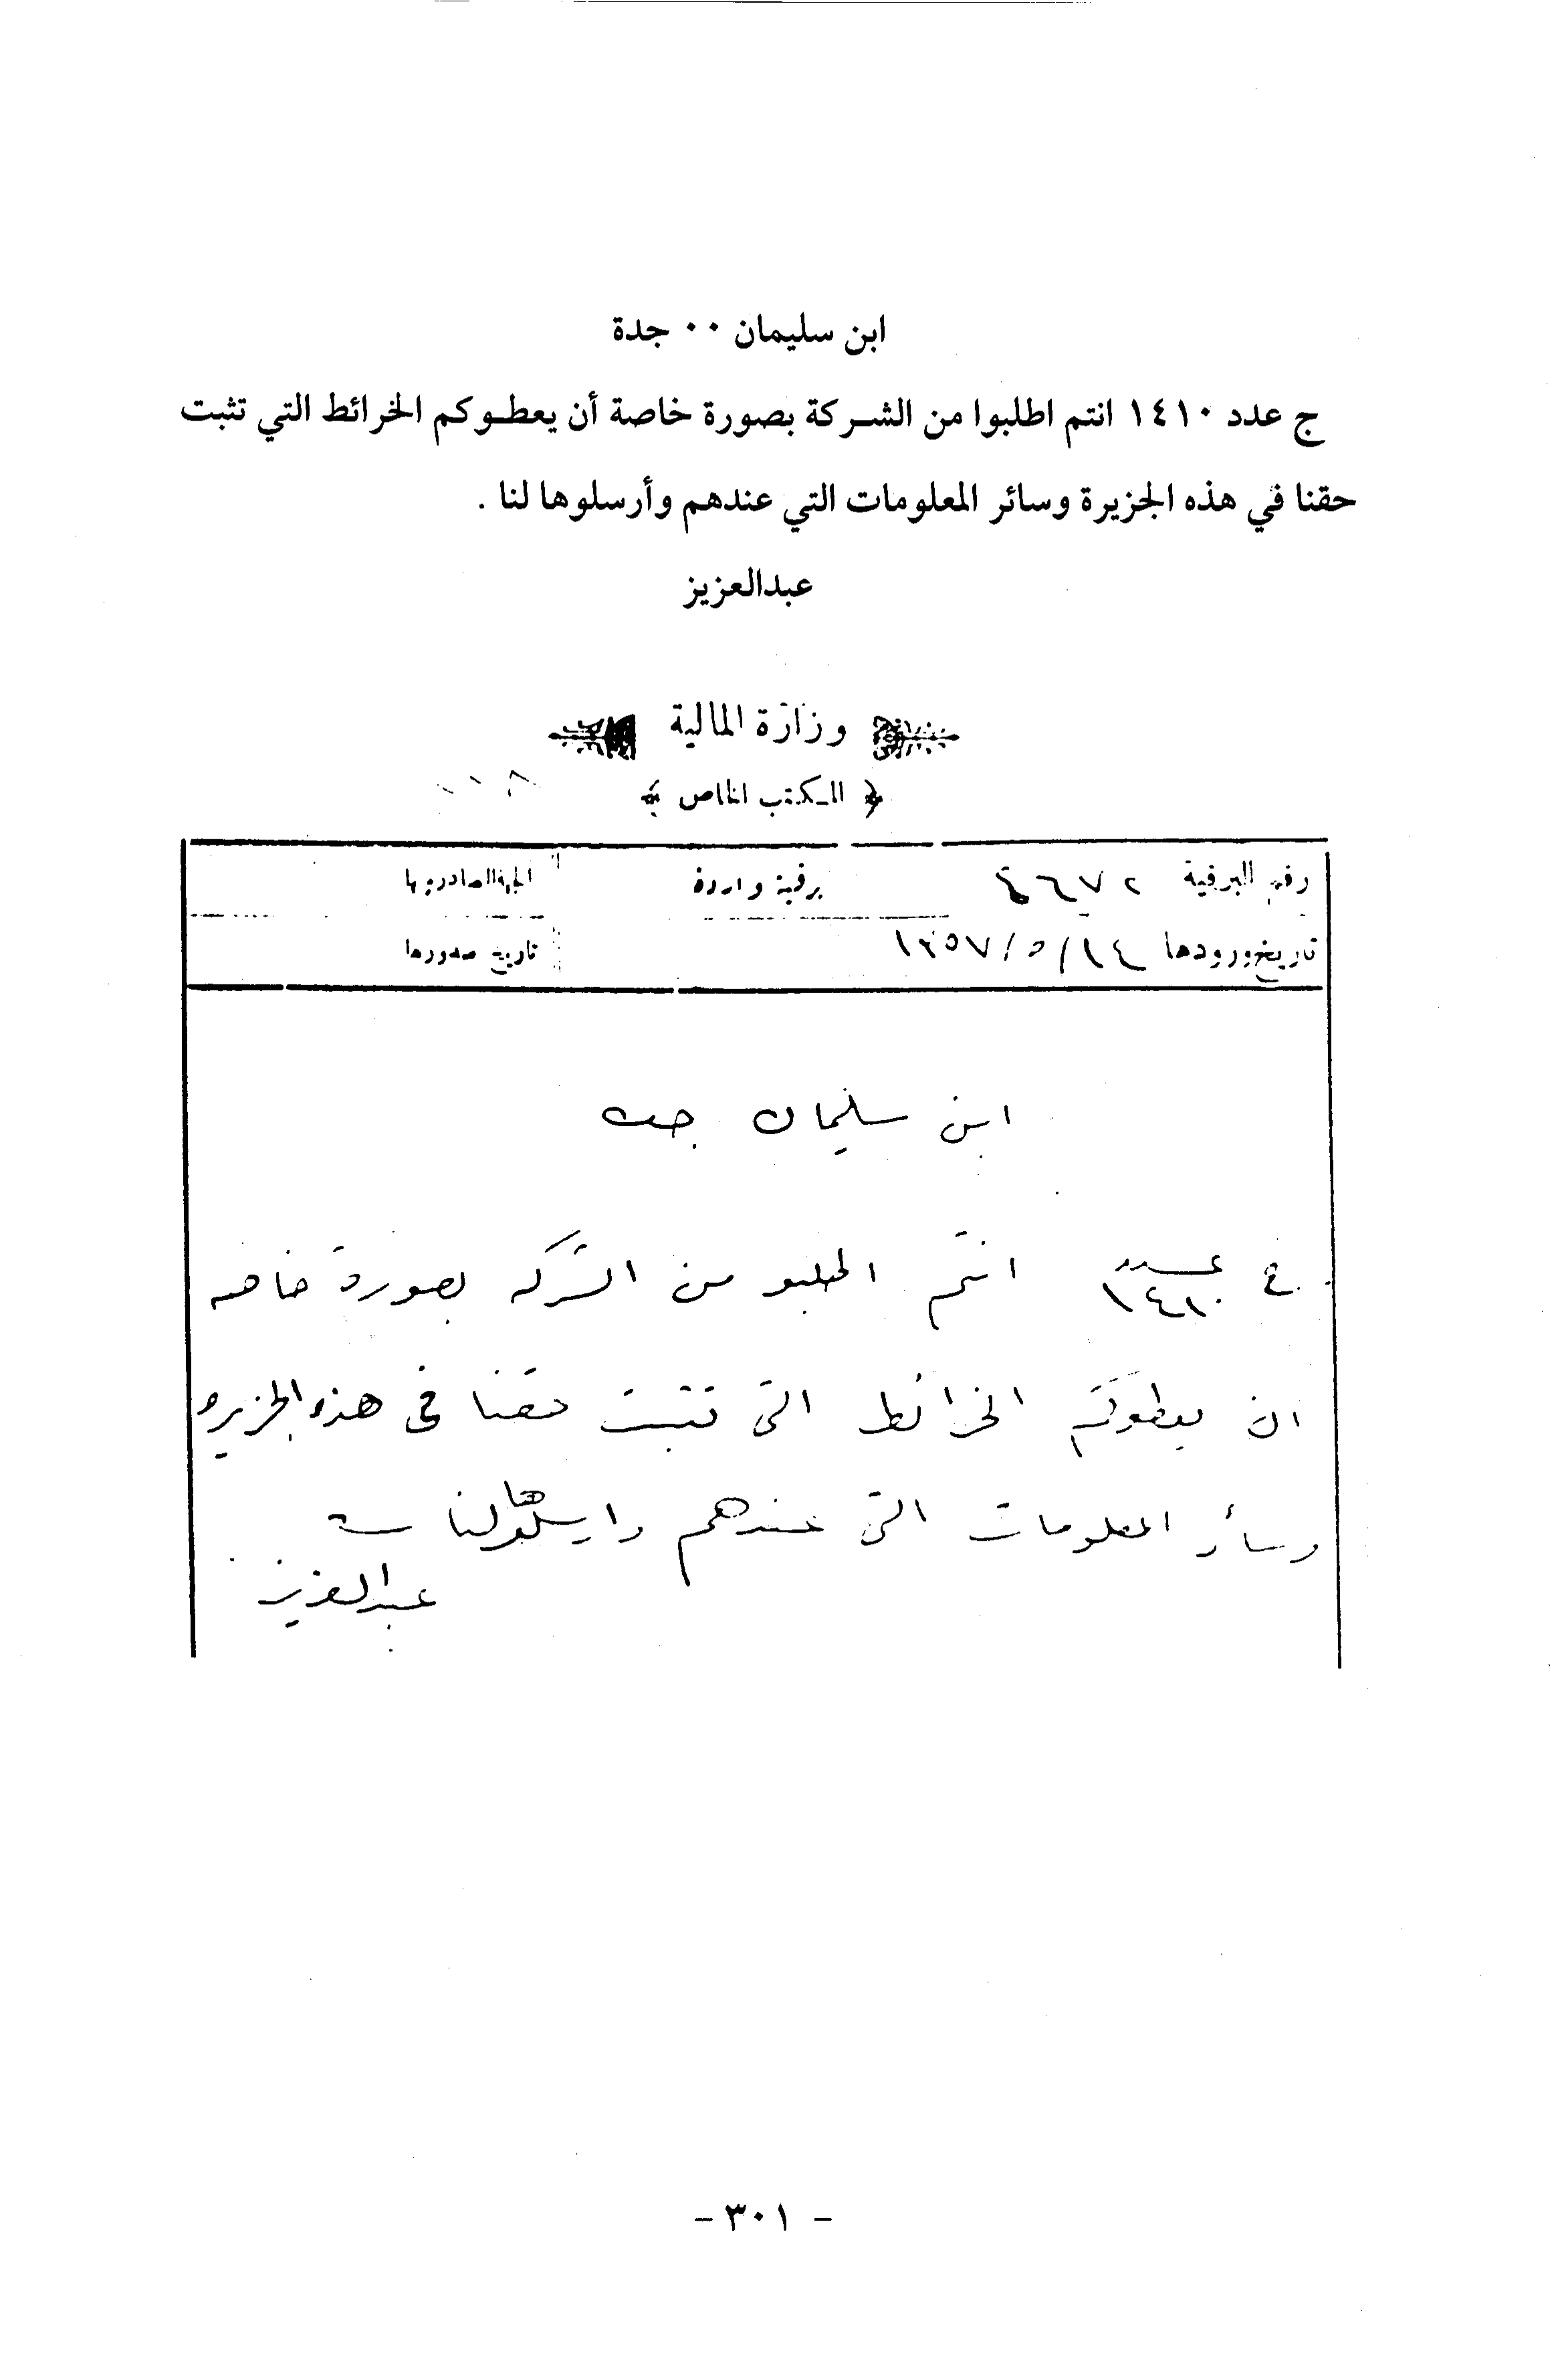 ابن سليمان ٠٠ جدة
ج عدد ١٤١٠ انتم اطلبوا من الشركة بصورة خاصة أن يعطوكم الخرائط التي تثبت
حقنا في هذه الجزيرة وسائر المعلومات التي عندهم وأرسلوها لنا .
عبدالعزيز
وزارة المالية
﴿ المكتب الخاص ﴾
رقم البرقية ٤٦٧٢ برقية واردة الجهة الصادر بها
تاريخ ورودها ١٤/٥/١٣٥٧ تاريخ صدورها
ابن سليمان جده
ج عدد ١٤١٠ انتم اطلبو من الشركه بصورة خاصه
ان يعطوكم الخرائط التي تثبت حقنا في هذه الجزيره
وسائر المعلومات التي عندهم وارسلوها لنا
عبدالعزيز
- ٣٠١ -